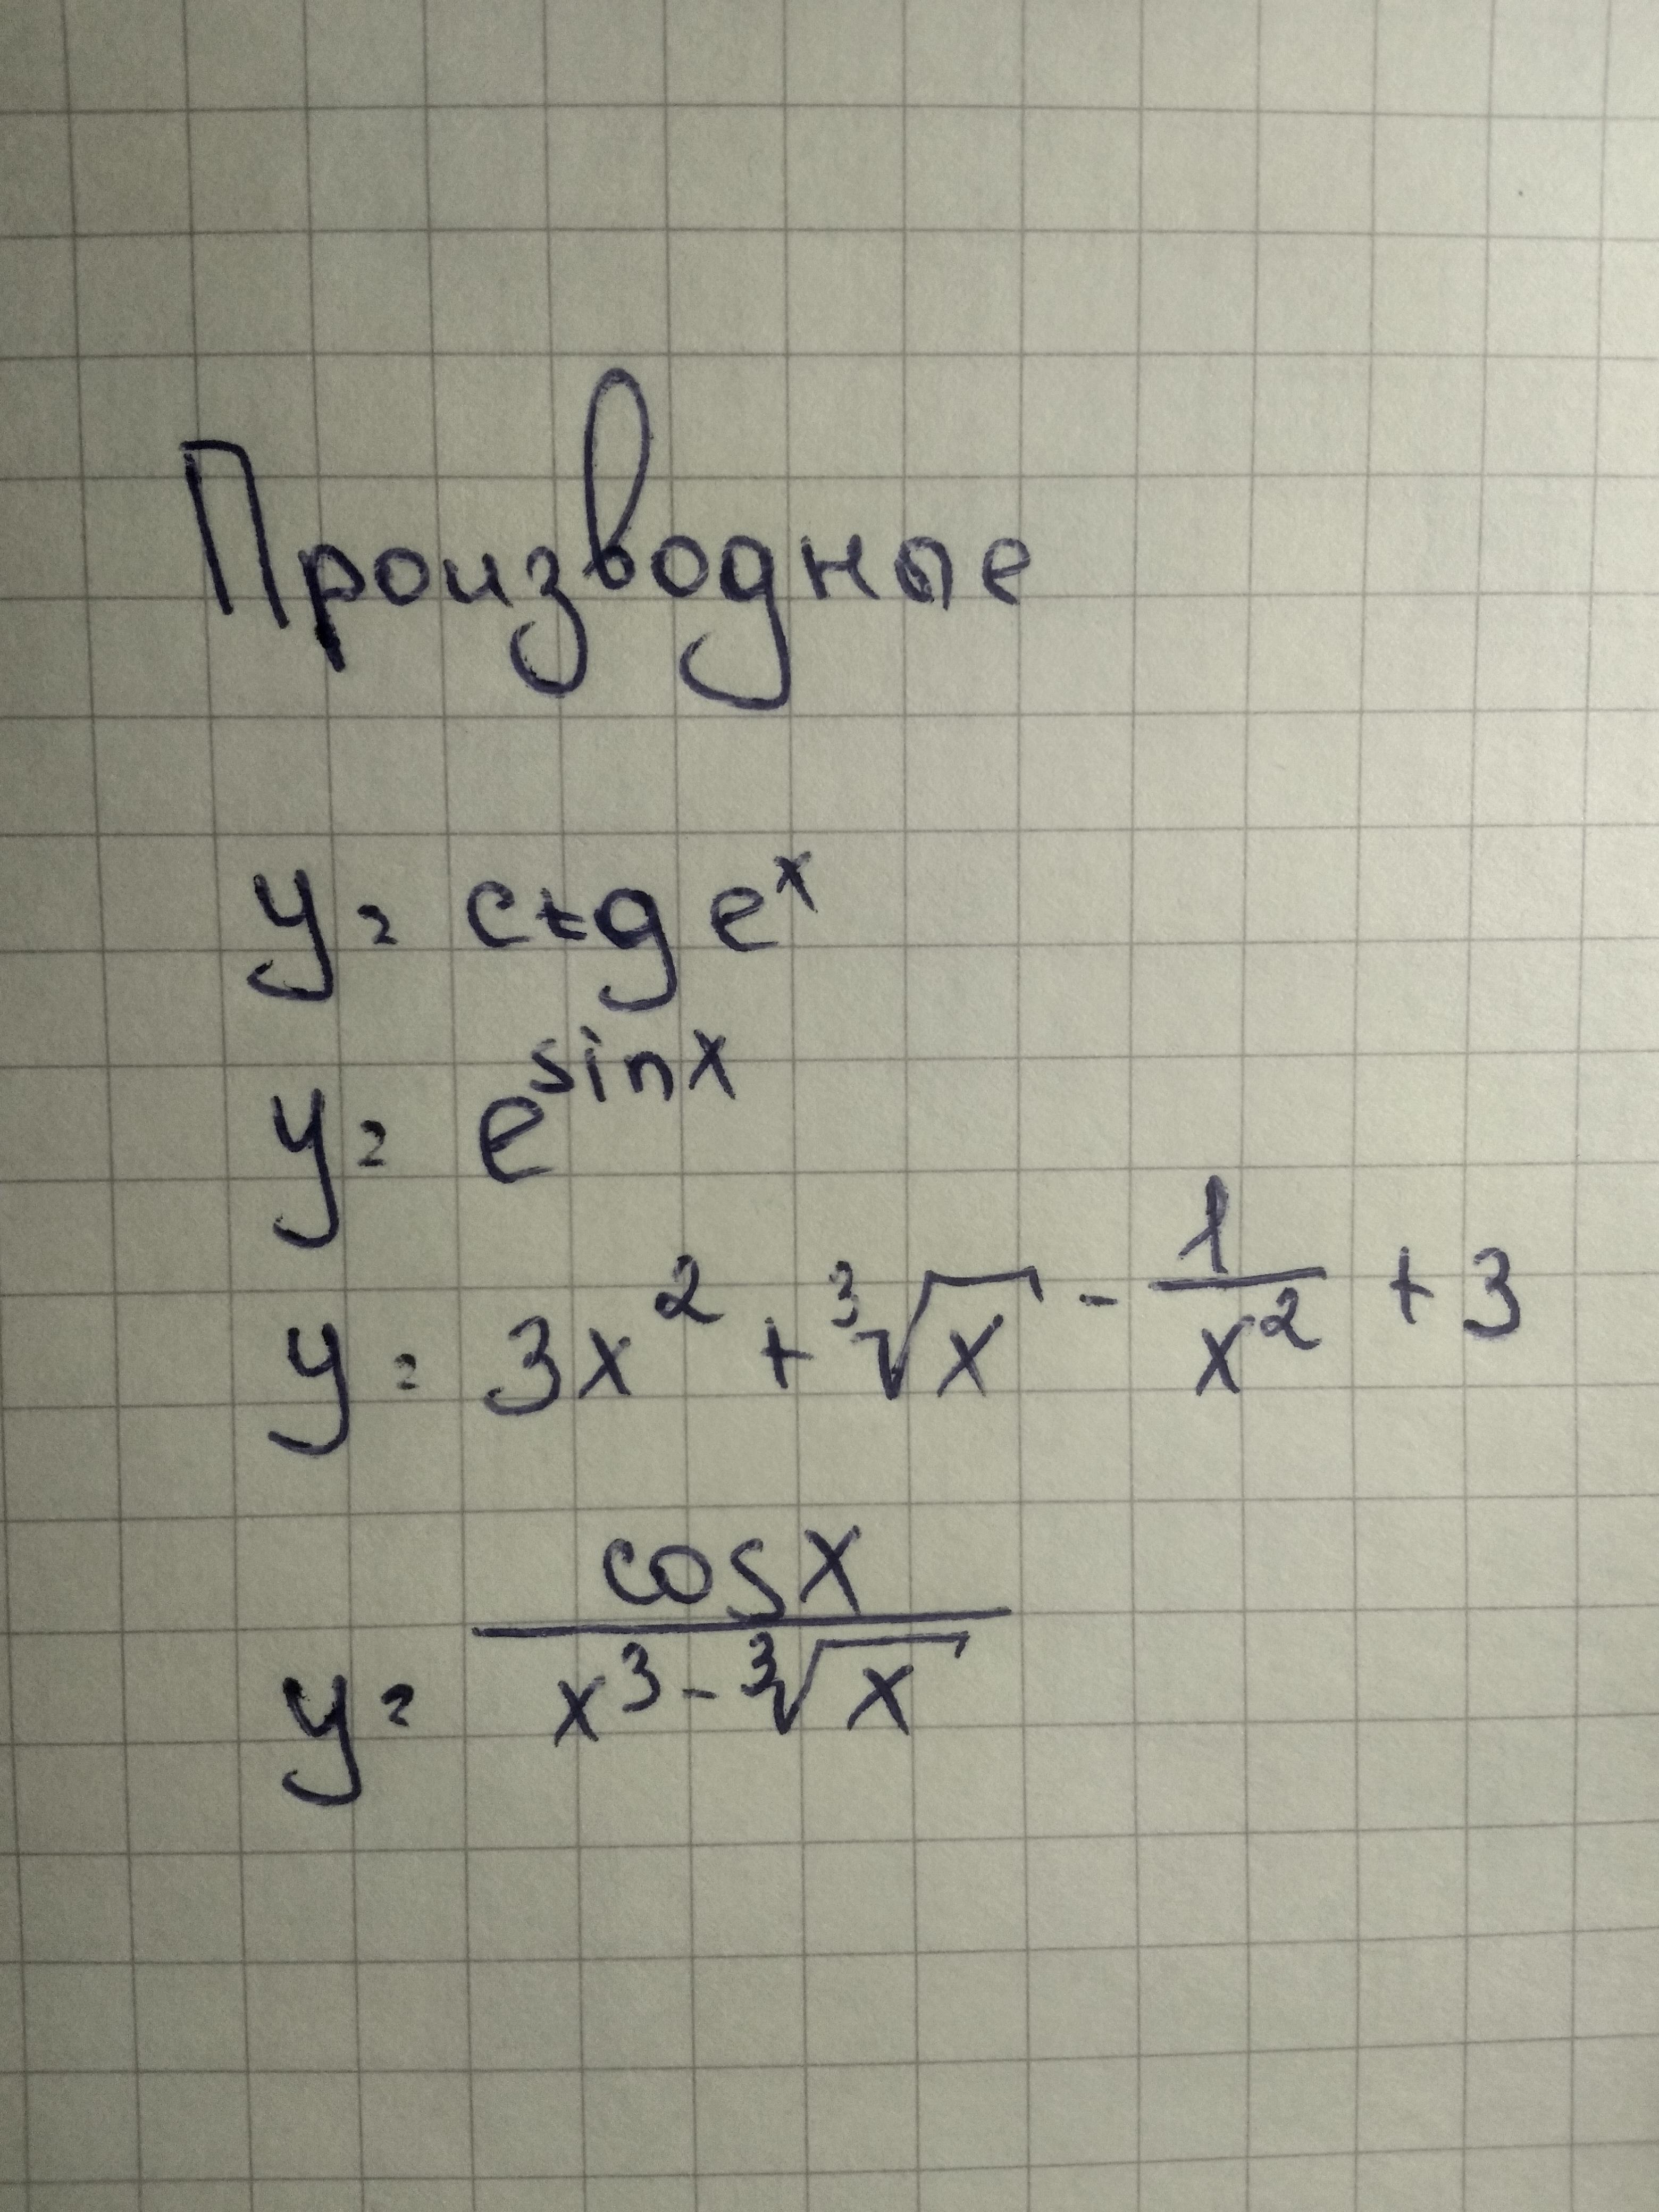 Производные
y = ctg e^x
y = e^sinx
y = 3x² + ³√x - 1/x² + 3
y = cosx / (x³ - ³√x)